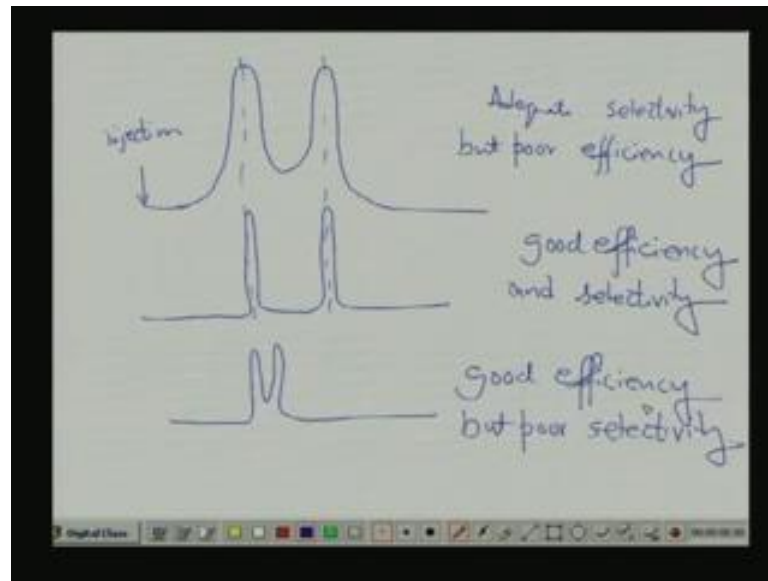 injection
Adequate selectivity
but poor efficiency
good efficiency
and selectivity
good efficiency
but poor selectivity
Digital Class
00:00:00:00